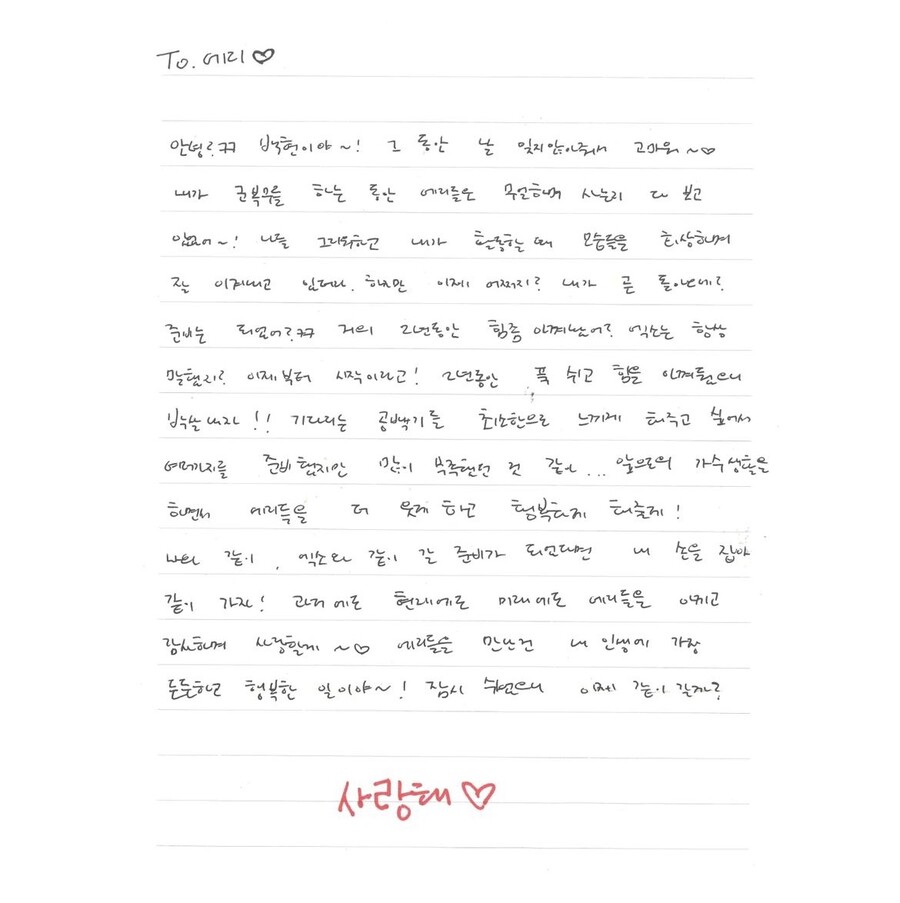 To. 에리♡
안녕?ㅋㅋ 백현이야~! 그 동안 날 잊지않아줘서 고마워~♡
내가 군복무를 하는 동안 에리들은 무얼하며 사는지 다 보고
있었어~! 나를 그리워하고 내가 활동할 때 모습들을 회상하며
잘 이겨내고 있더라. 하지만 이제 어쩌지? 내가 곧 돌아간네?
준비는 되었어?ㅋㅋ 거의 2년동안 힘좀 아껴놨어? 엑소는 항상
말했지? 이제부터 시작이라고! 2년동안 푹 쉬고 힘을 아껴뒀으니
박살내자!! 기다리는 공백기를 최소한으로 느끼게 해주고 싶어서
여러가지를 준비했지만 많이 부족했던 것 같아... 앞으로의 가수생활을
하면서 에리들을 더 웃게 하고 행복하게 해줄게!
나와 같이, 엑소와 같이 갈 준비가 되었다면 내 손을 잡아
같이 가자! 과거에도 현재에도 미래에도 에리들을 아끼고
감사하며 사랑할게~♡ 에리들을 만난건 내 인생에 가장
든든하고 행복한 일이야~! 잠시 쉬었으니 이제 같이 갈까?
사랑해♡